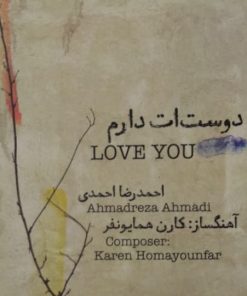 دوستات دارم
LOVE YOU
احمدرضا احمدی
Ahmadreza Ahmadi
آهنگساز: کارن همایونفر
Composer:
Karen Homayounfar